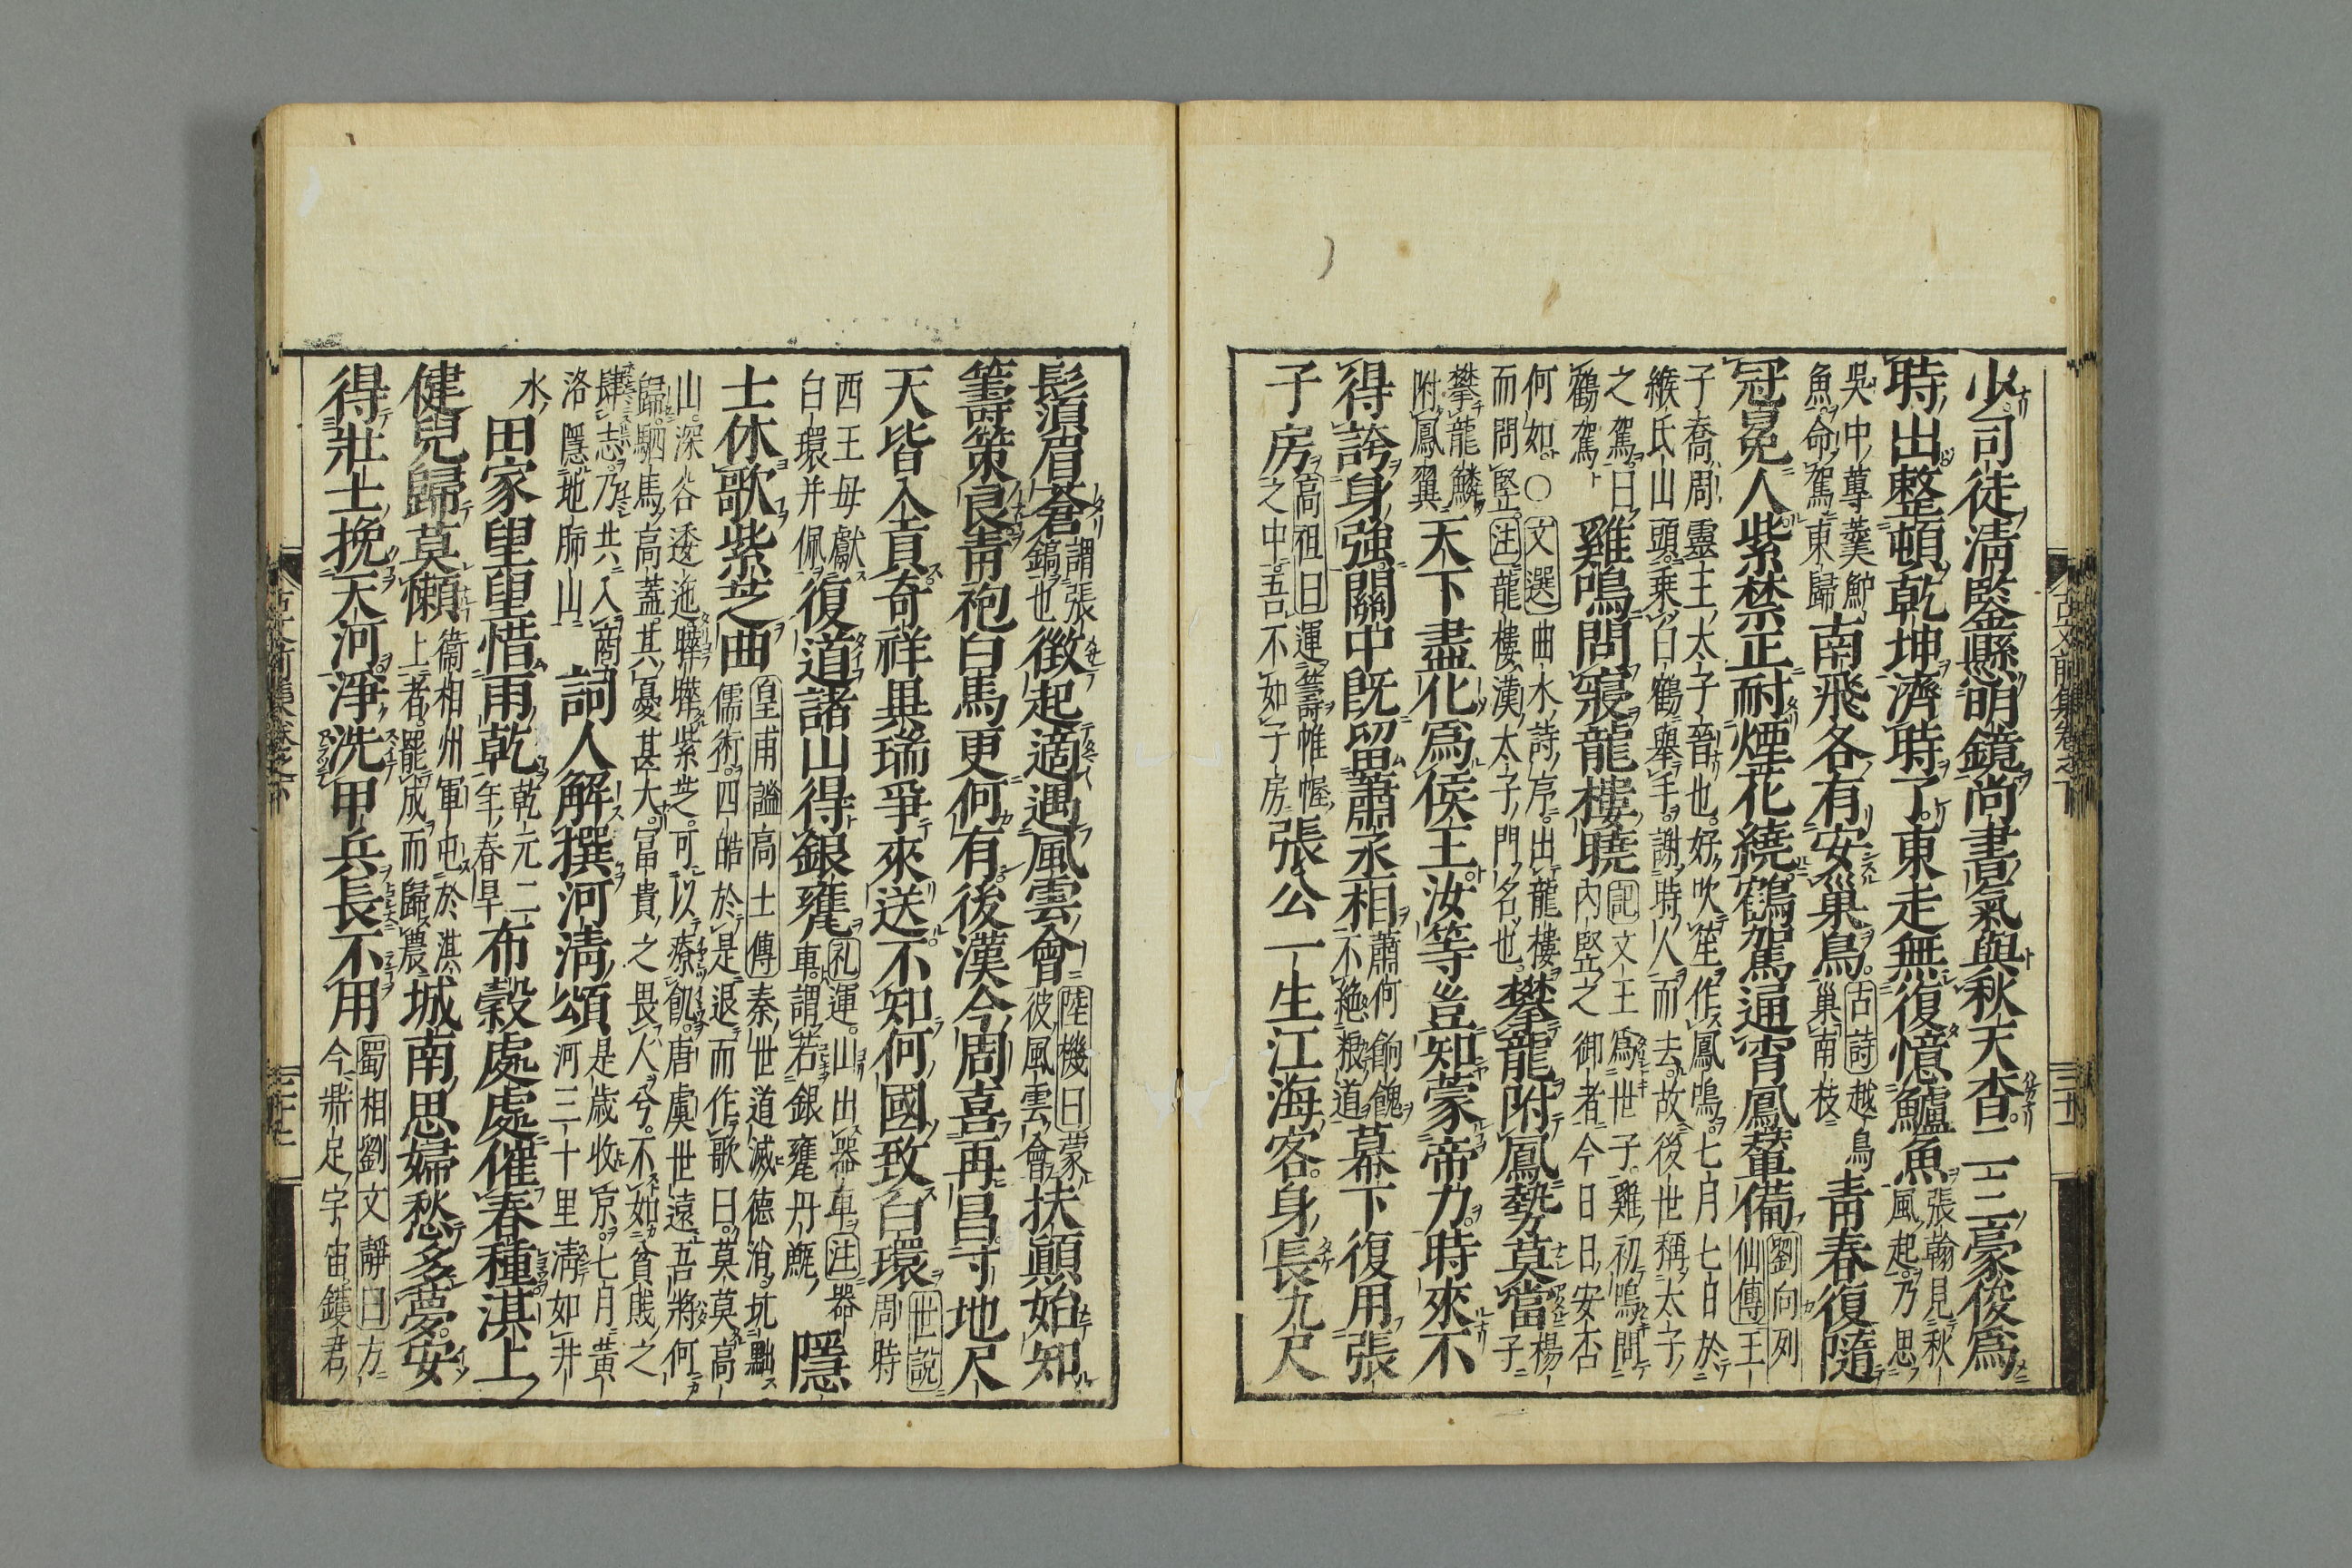 少司徒清鑒懸明鏡尚書氣與秋天杳二三豪俊爲
時出整頓乾坤濟時了東走無復憶鱸魚張翰見秋
風起乃思
吳中蓴羹鱸
魚命駕東歸南飛各有安巢鳥古詩越鳥
巢南枝青春復隨
冠冕入紫禁正耐煙花繞鶴駕通宵鳳輦備劉向列
仙傳王
子喬周靈王太子晉也好吹笙作鳳鳴七月七日於
緱氏山頭乘白鶴舉手謝時人而去故後世稱太子
之駕曰
鶴駕雞鳴問寢龍樓曉記文王爲世子雞初鳴問
內竪之御者今日日安否
何如○文選曲水詩序出龍樓
而問竪注龍樓漢太子門名也攀龍附鳳勢莫當楊
子
攀龍鱗
附鳳翼天下盡化爲侯王汝等豈知蒙帝力時來不
得誇身強關中既留蕭丞相蕭何餉餽
不絶粮道幕下復用張
子房高祖曰運籌帷幄
之中吾不如子房張公一生江海客身長九尺
鬚眉蒼謂張
鎬也徵起適遇風雲會陸機曰蒙
彼風雲會扶顛始知
籌策良靑袍白馬更何有後漢今周喜再昌寸地尺
天皆入貢奇祥異瑞爭來送不知何國致白環世說
周時
西王母獻
白環并佩復道諸山得銀甕礼運山出器車注器
車謂若銀甕丹甑隱
士休歌紫芝曲皇甫謐高士傳秦世道滅德消坑黜
儒術四皓於是退而作歌曰莫莫高
山深谷逶迤曄曄紫芝可以療飢唐虞世遠吾將何
歸駟馬高蓋其憂甚大富貴之畏人兮不如貧賎之
肆志乃共入商
洛隱地肺山詞人解撰河淸頌是歳收京七月黃
河三十里淸如井
水田家望望惜雨乾乾元二
年春旱布穀處處催春種淇上
健兒歸莫懶衞相州軍屯於淇
上者罷成而歸農城南思婦愁多夢安
得壯士挽天河淨洗甲兵長不用蜀相劉文靜曰方
今鼎足宇宙鑊君